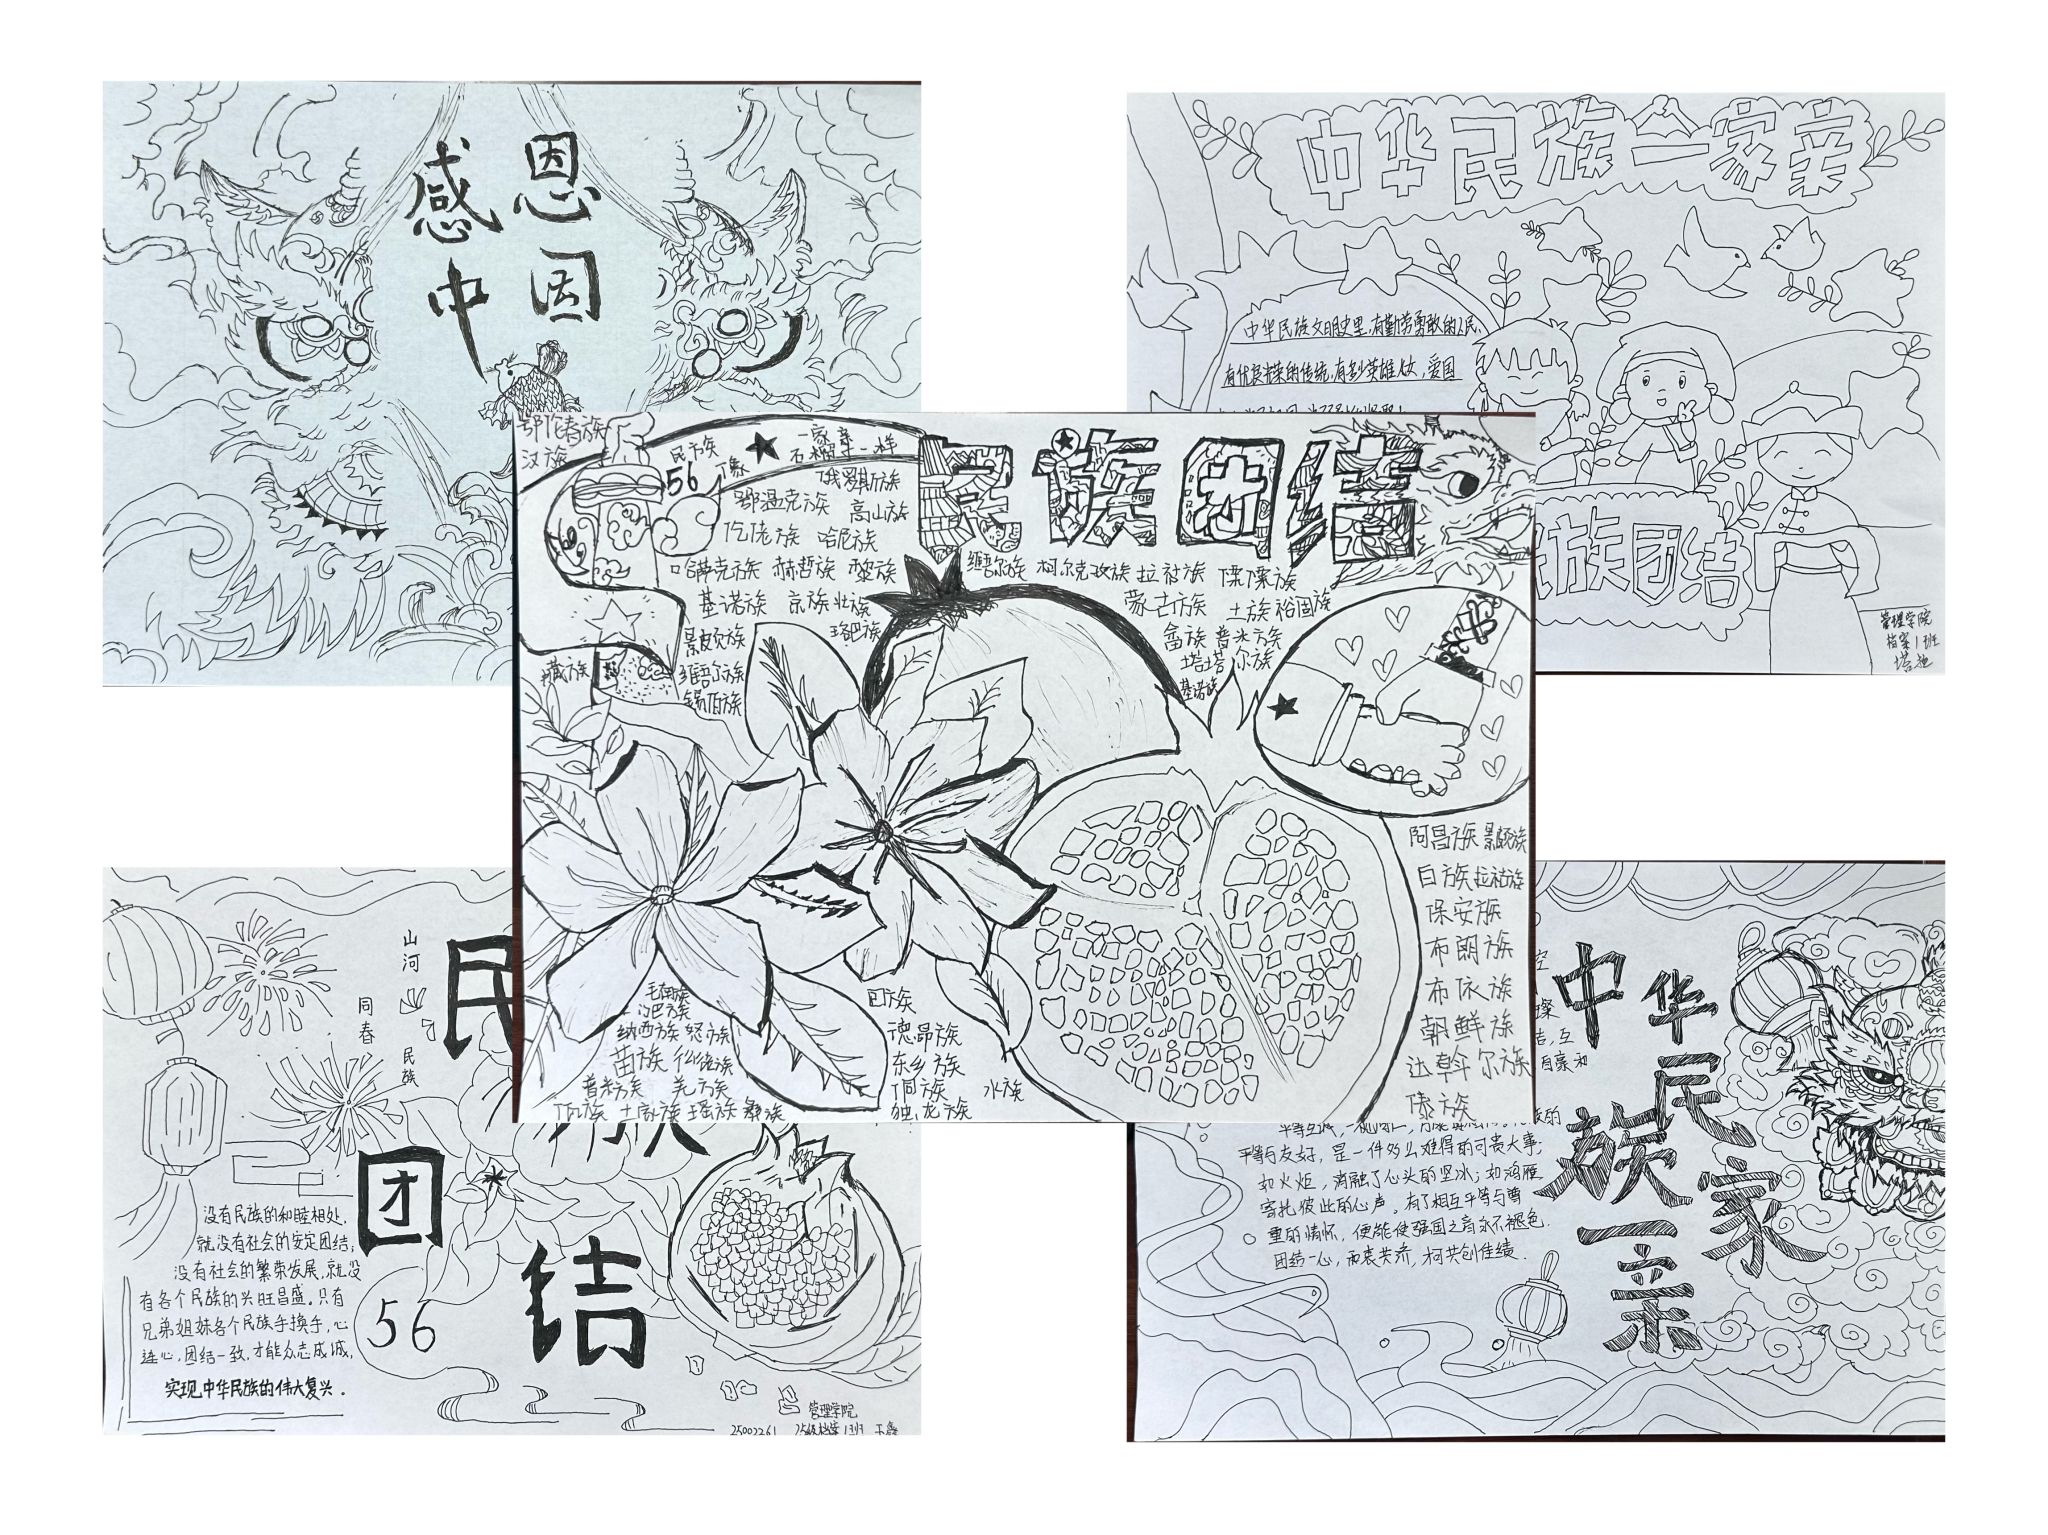 感恩
中国
中华民族一家亲
中华民族文明史里,有勤劳勇敢的人民,
有优良光荣的传统,有多少英雄儿女,爱国
民族团结
管理学院
档案1班
鄂伦春族
汉族
民族
56个象
一家亲
石榴籽一样
民族团结
俄罗斯族
鄂温克族 高山族
仡佬族 哈尼族
哈萨克族 赫哲族 黎族
基诺族 京族 壮族
珞巴族
景皮欠族
维吾尔族
锡伯族
藏族
维吾尔族 柯尔克孜族 拉祜族 傈僳族
蒙古族 土族 裕固族
畲族 普米族
塔塔尔族
基诺族
阿昌族 景颇族
白族 拉祜族
保安族
布朗族
布依族
朝鲜族
达斡尔族
傣族
毛南族
纳西族 怒族
苗族 仫佬族
普米族 羌族
土家族 瑶族 彝族
回族
德昂族
东乡族
侗族
独龙族
水族
山河
同春
民族
民族
团
结
56
没有民族的和睦相处,
就没有社会的安定团结;
没有社会的繁荣发展,就没
有各个民族的兴旺昌盛。只有
兄弟姐妹各个民族手换手,心
连心,团结一致,才能众志成诚,
实现中华民族的伟大复兴.
管理学院
25002261 25级档案1班 王鑫
中华民族一家亲
平等与友好,是一件多么难得的可贵大事;
如火炬,消融了心头的坚冰;如鸿雁
寄扎彼此的心声。有了相互平等与尊
重的情怀,便能使强国之音永不褪色.
团结一心,两表共济,柯共创佳绩.